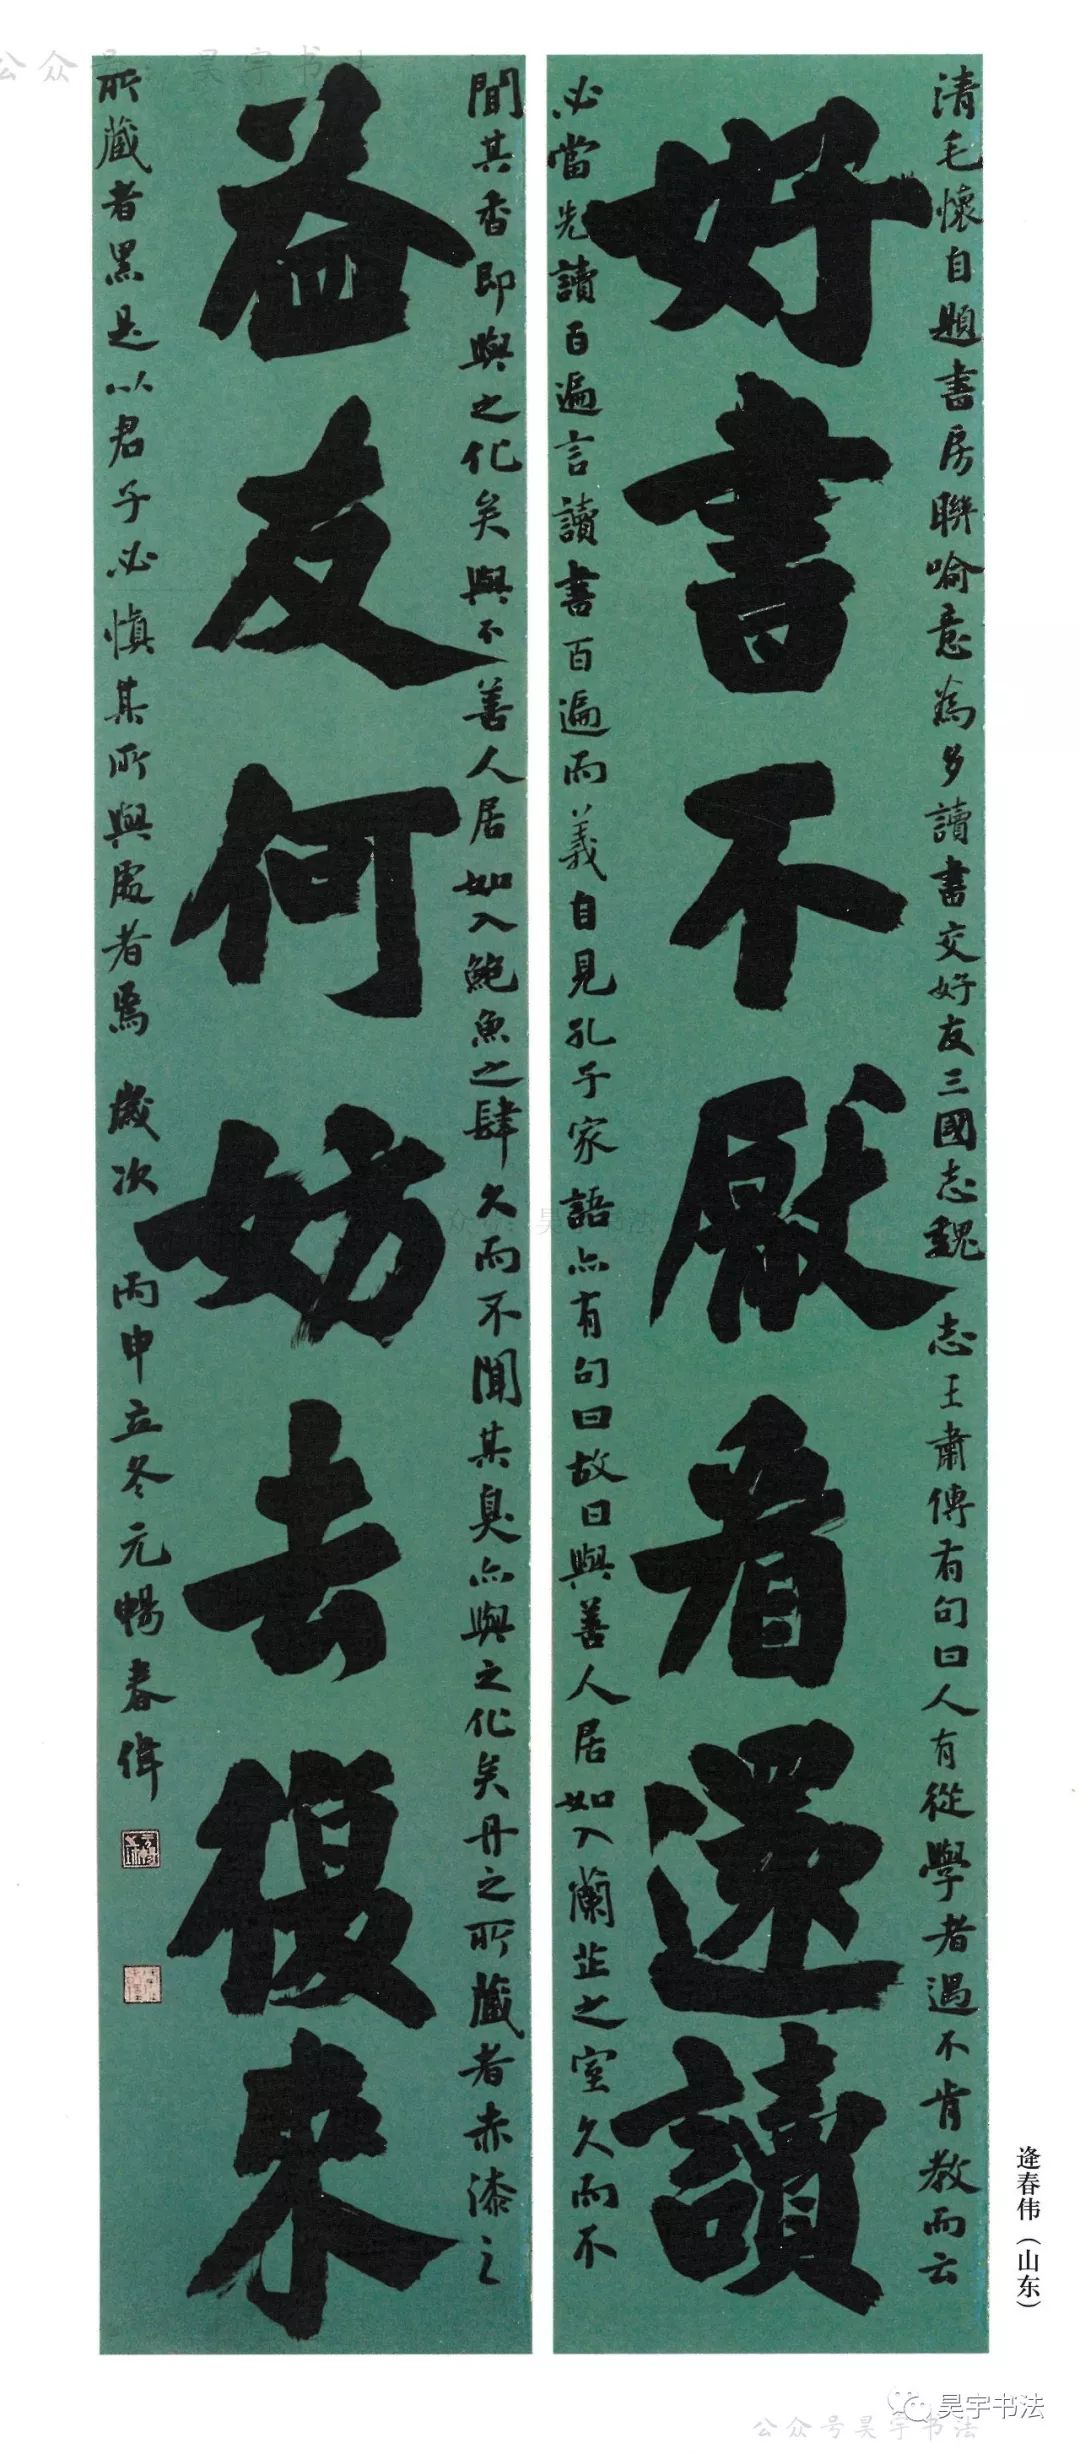 清毛懷自題書房聯喻意為多讀書交好友三國志魏志王肅傳有句曰人有從學者遇不肯教而云
好書不厭看還讀
必當先讀百遍言讀書百遍而義自見孔子家語亦有句曰故曰與善人居如入蘭芷之室久而不
聞其香即與之化矣與不善人居如入鮑魚之肆久而不聞其臭亦與之化矣丹之所藏者赤漆之
益友何妨去復來
所藏者黑是以君子必慎其所與處者焉 歲次丙申立冬元暢春偉
逄春伟（山东）
公众号：昊宇书法
众号：昊宇书法
昊宇书法
公众号昊宇书法